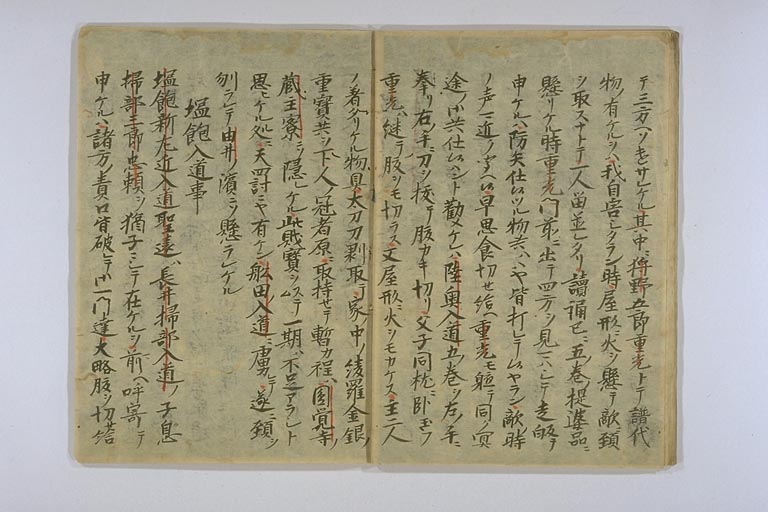 テ三方ヘソ走サレケル其中ニ狩野五郎重光トテ譜代
物ノ有ケルヲハ我自害シタラン時屋形ニ火ヲ懸テ敵ニ頚
ヲ取スナトテ一人留置レタリ讀誦已ニ五ノ巻提婆品ニ
懸リケル時重光門前ニ出テ四方ヲ見ルヨシニテ走皈テ
申ケルハ防矢仕ツル物共ハハヤ皆打レテ候ヤラン敵時
ノ声近ノ候早思食切セ給ヘ重光モ軈テ同ク冥
途ノ御共仕候ハント勧メケレハ陸奥入道五ノ巻ヲ左ノ手ニ
拳リ右ノ手ニ刀ヲ抜テ腹カキ切リ父子同枕ニ臥玉フ
重光ハ継テ腹ヲモ切ラス又屋形ニ火ヲモカケス主二人
ノ着タリケル物具太刀刀剥取テ家中ノ綾羅金銀ノ
重寶共ヲ下人冠者原ニ取持セテ暫カ程ハ圓覚寺ノ
蔵主寮ニソ隠レケル此財寶ヲ一期ハ不足アラシト
思ヒケル処ニ天四討ニヤ有ケン舩田入道ニ虜レテ遂ニ頚ヲ
刎ラレテ由井ノ濱ニソ懸ラレケル
塩飽入道事
塩飽新左近入道聖遠ハ長井掃部入道ノ子息
掃部三郎忠頼ヲ猶子ニシテ在ケルヲ前ヘ呼寄テ
申ケルハ諸方ノ責口皆破レテ御一門達大略腹ヲ切セ給